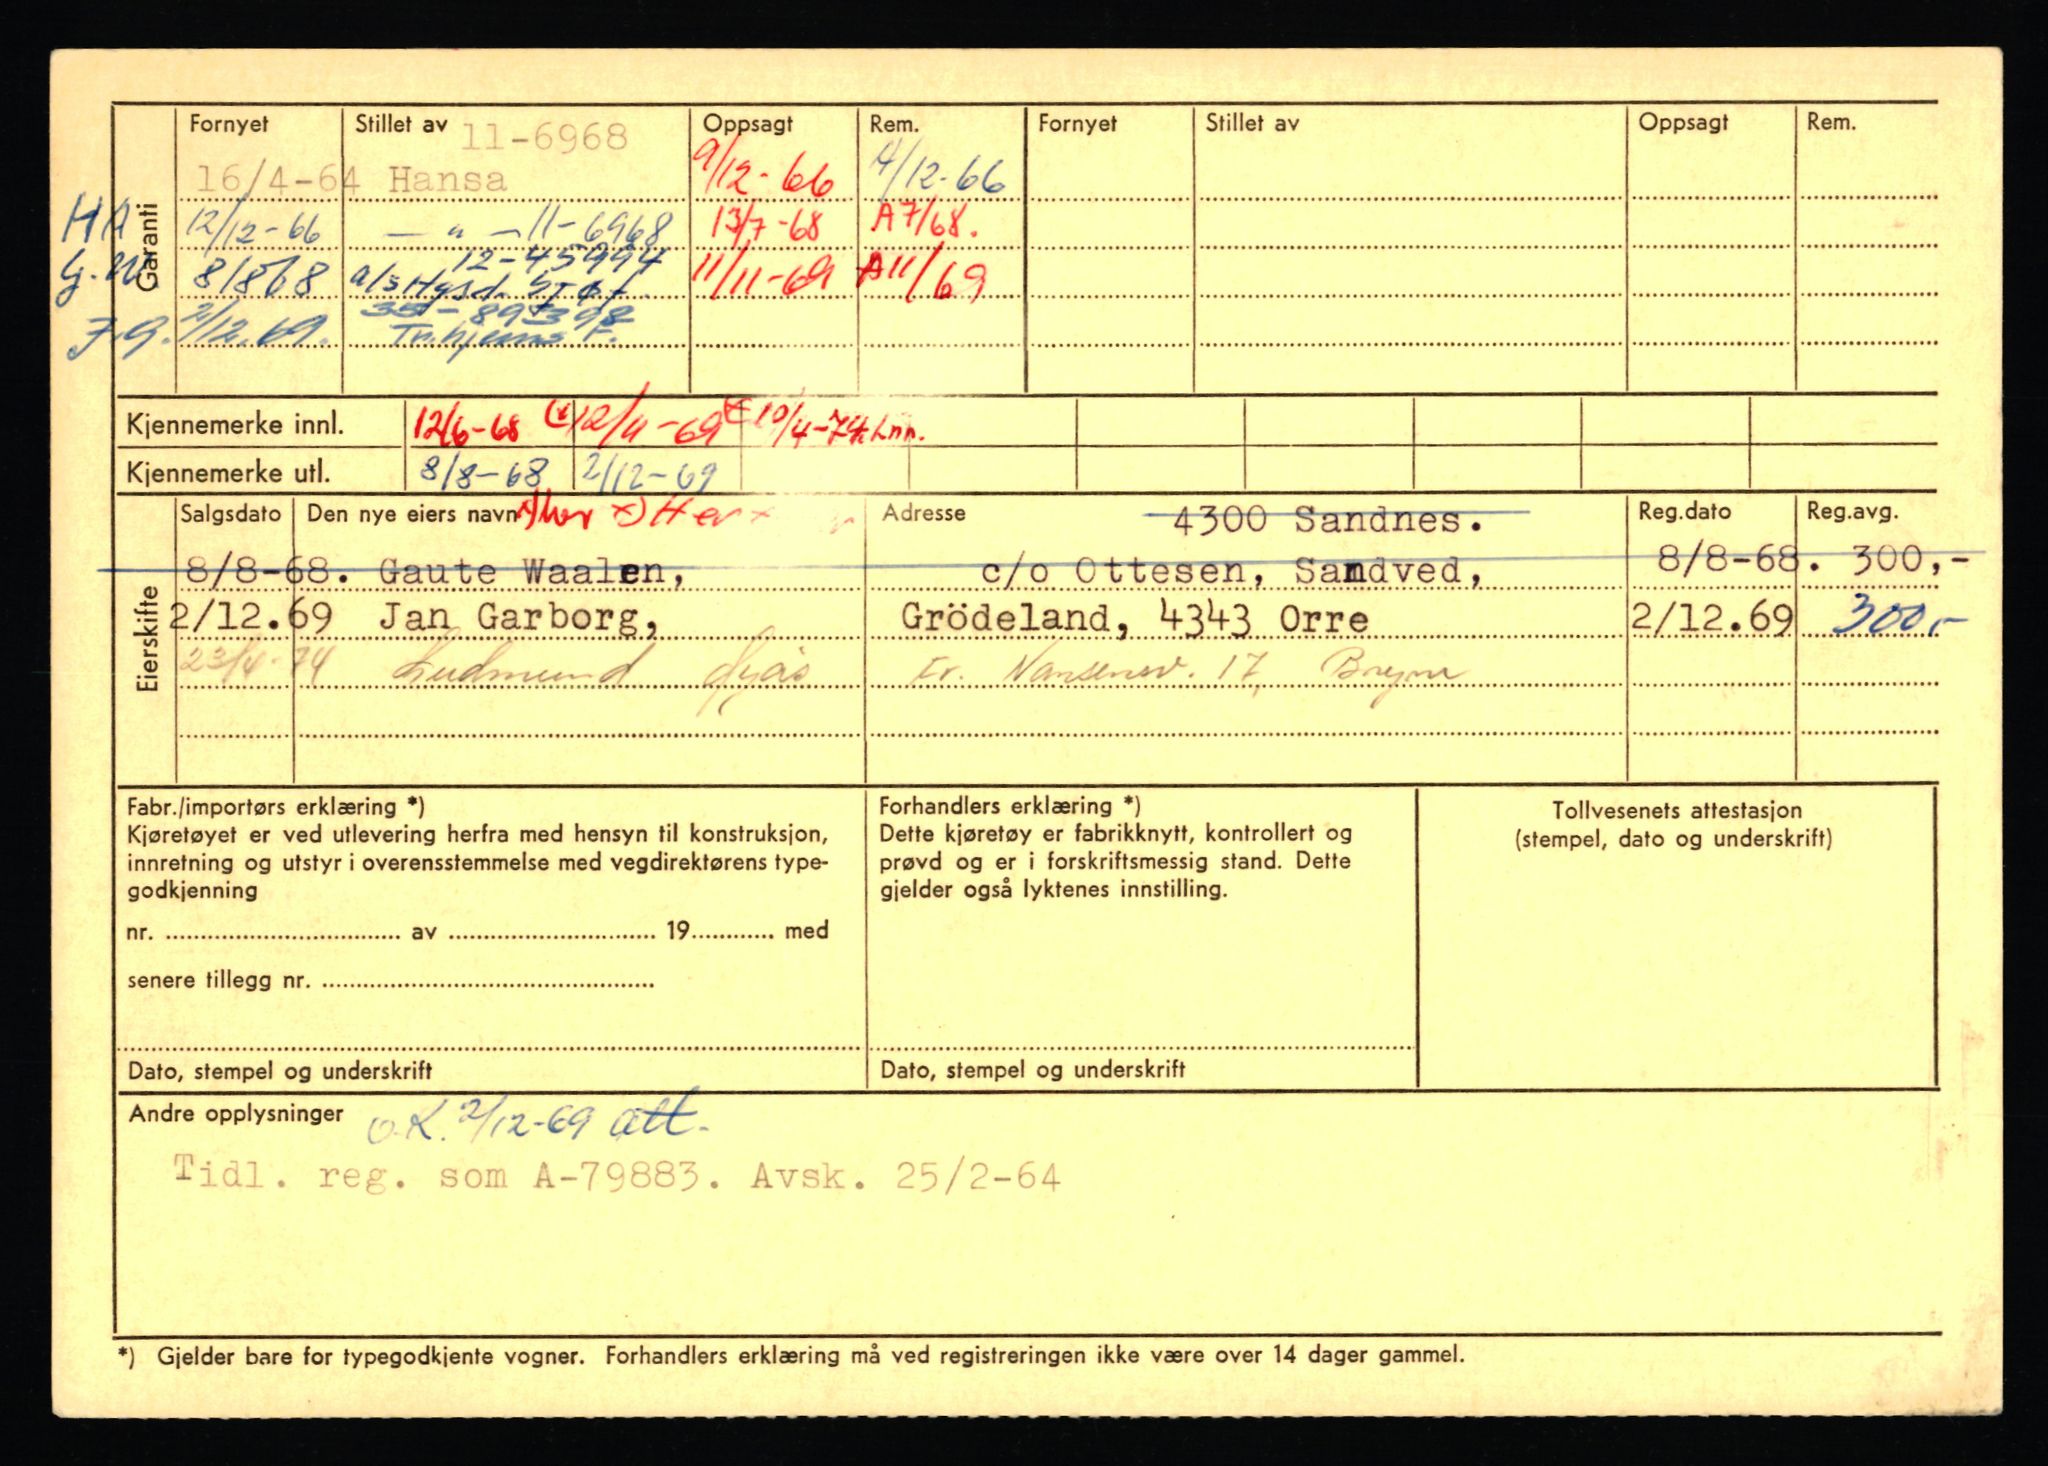 Garanti
Fornyet Stillet av Oppsagt Rem. Fornyet Stillet av Oppsagt Rem.
11-6968
16/4-64 Hansa 9/12-66 4/12-66
HA 12/12-66 — " — 11-6968 13/7-68 A7/68.
12-45994
8/8 68 a/s 11/11-69 A11/69
35-895398
J.G. 2/12.69. Tr.hjems F.
Kjennemerke innl. 12/6-68 12/11-69 19/4-74
Kjennemerke utl. 8/8-68 2/12-69
Eierskifte
Salgsdato Den nye eiers navn Adresse 4300 Sandnes. Reg.dato Reg.avg.
8/8-68. Gaute Waalen, c/o Ottesen, Sandved, 8/8-68. 300,-
2/12.69 Jan Garborg, Grödeland, 4343 Orre 2/12.69 300,-
23/4-74 Ludmund Fr. Nansensv. 17, Bryne
Fabr./importørs erklæring *)
Kjøretøyet er ved utlevering herfra med hensyn til konstruksjon,
innretning og utstyr i overensstemmelse med vegdirektørens type-
godkjenning
nr. .................... av .................... 19............ med
senere tillegg nr. ....................
Dato, stempel og underskrift
Forhandlers erklæring *)
Dette kjøretøy er fabrikknytt, kontrollert og
prøvd og er i forskriftsmessig stand. Dette
gjelder også lyktenes innstilling.
Dato, stempel og underskrift
Tollvesenets attestasjon
(stempel, dato og underskrift)
Andre opplysninger O.K. 2/12-69 att.
Tidl. reg. som A-79883. Avsk. 25/2-64
*) Gjelder bare for typegodkjente vogner. Forhandlers erklæring må ved registreringen ikke være over 14 dager gammel.